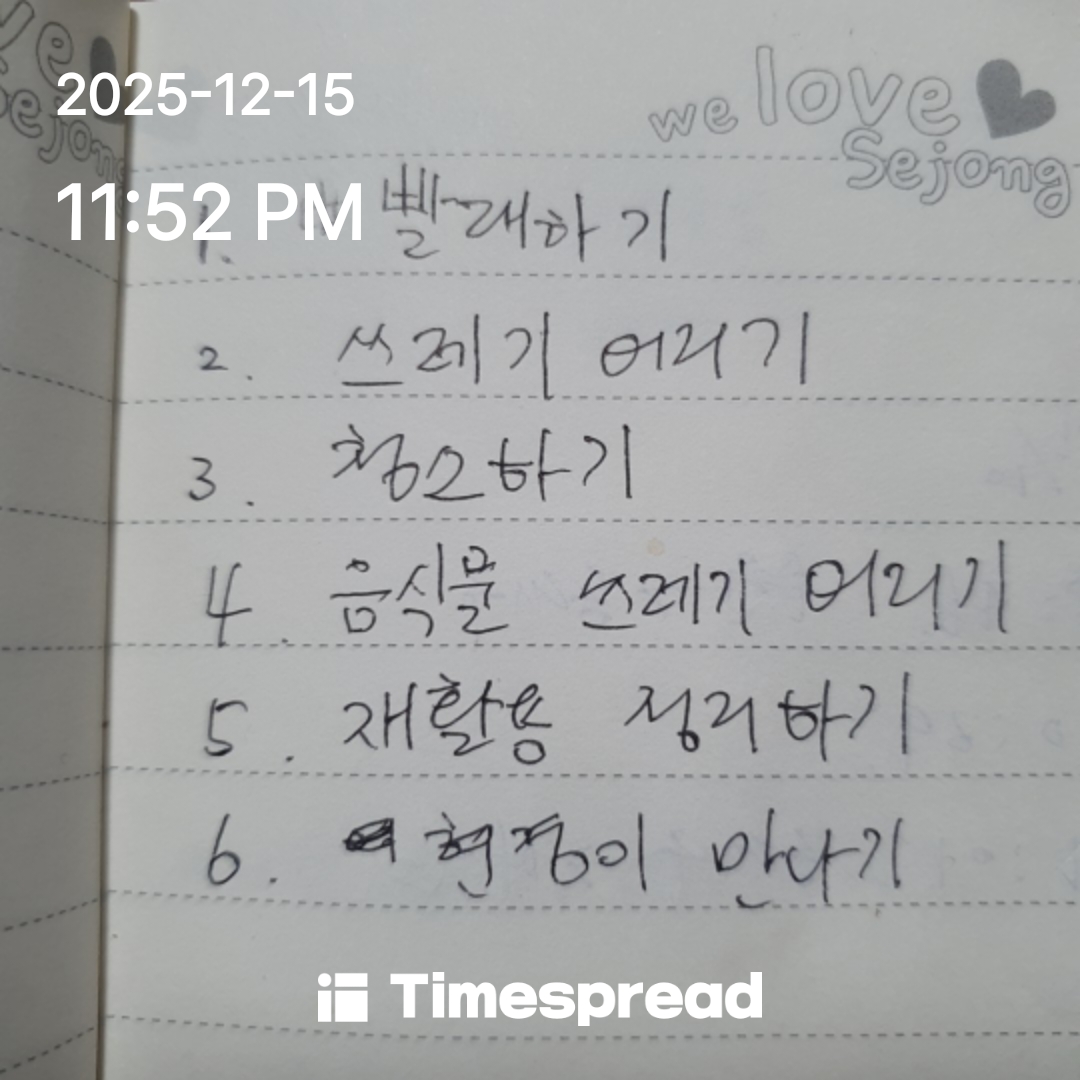 we love
Sejong
2025-12-15
11:52 PM
1. 빨래하기
2. 쓰레기 버리기
3. 청소하기
4. 음식물 쓰레기 버리기
5. 재활용 정리하기
6. 현정이 만나기
Timespread